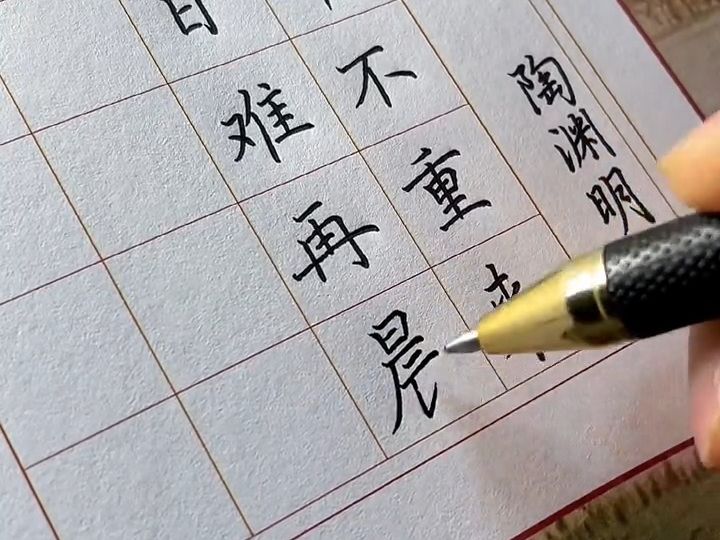 陶渊明
不重来
日难再晨